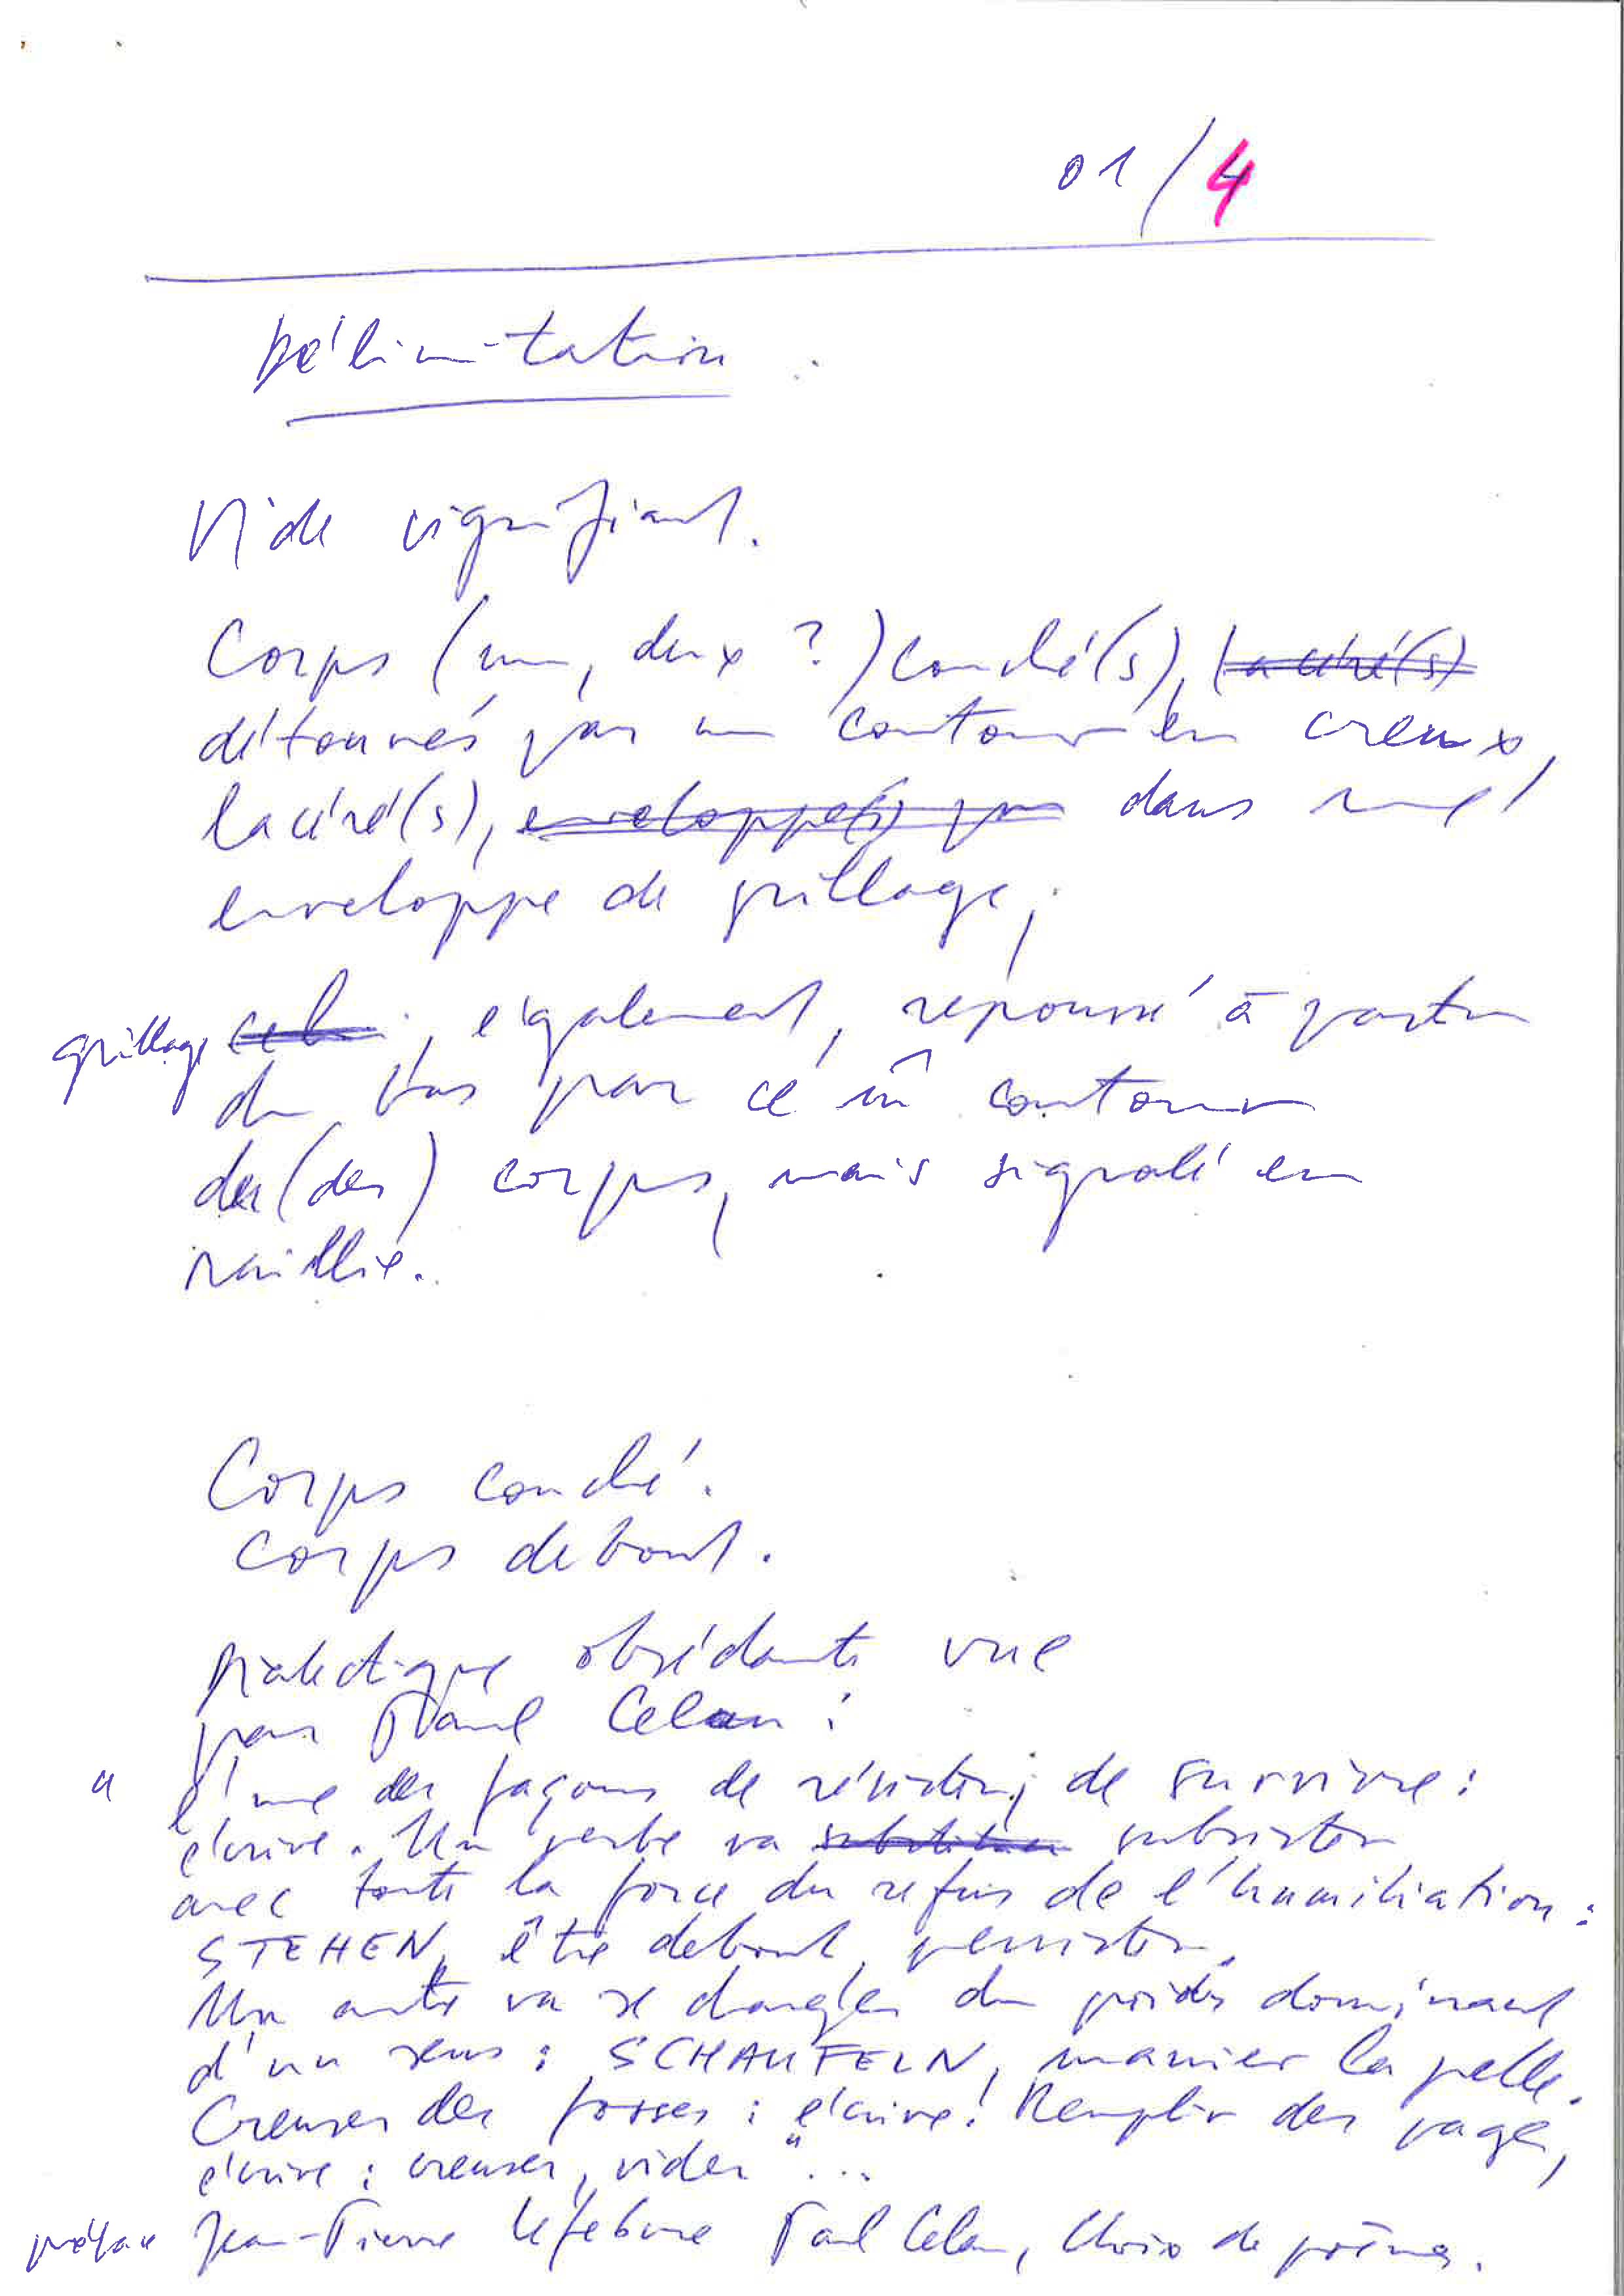 01/4
Délimitation
Vide signifiant.
Corps (un, deux ?) couché(s), lacéré(s)
détourés par un contour en creux,
lacéré(s), enveloppé(s) par dans une
enveloppe de grillage,
grillage, également, repoussé à partir
du bas par ce contour
du (des) corps, mais signalé en
saillie.
Corps couché.
Corps debout.
Dialectique obsédante vue
par Paul Celan :
" l'une des façons de résister, de survivre :
écrire. Un verbe va subsister
avec toute la force du refus de l'humiliation :
STEHEN, être debout, persister.
Un autre va se charger du poids dominant
d'un sens : SCHAUFELN, manier la pelle.
Creuser des fosses : écrire ! Remplir des pages,
écrire : creuser, vider " ...
préface Jean-Pierre Lefebvre Paul Celan, Choix de poèmes.